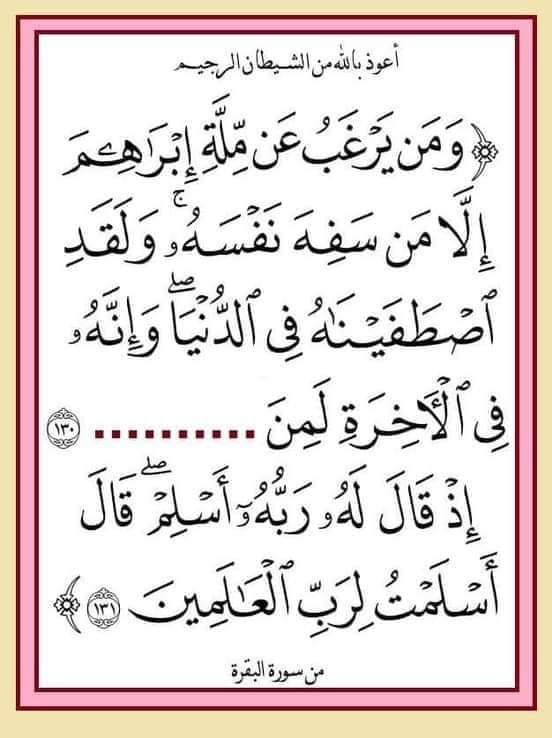 أعوذ بالله من الشيطان الرجيم
﴿ وَمَن يَرْغَبُ عَن مِّلَّةِ إِبْرَٰهِـۧمَ
إِلَّا مَن سَفِهَ نَفْسَهُۥ ۚ وَلَقَدِ
ٱصْطَفَيْنَٰهُ فِى ٱلدُّنْيَا ۖ وَإِنَّهُۥ
فِى ٱلْـَٔاخِرَةِ لَمِنَ .......... ١٣٠
إِذْ قَالَ لَهُۥ رَبُّهُۥٓ أَسْلِمْ ۖ قَالَ
أَسْلَمْتُ لِرَبِّ ٱلْعَٰلَمِينَ ١٣١ ﴾
من سورة البقرة